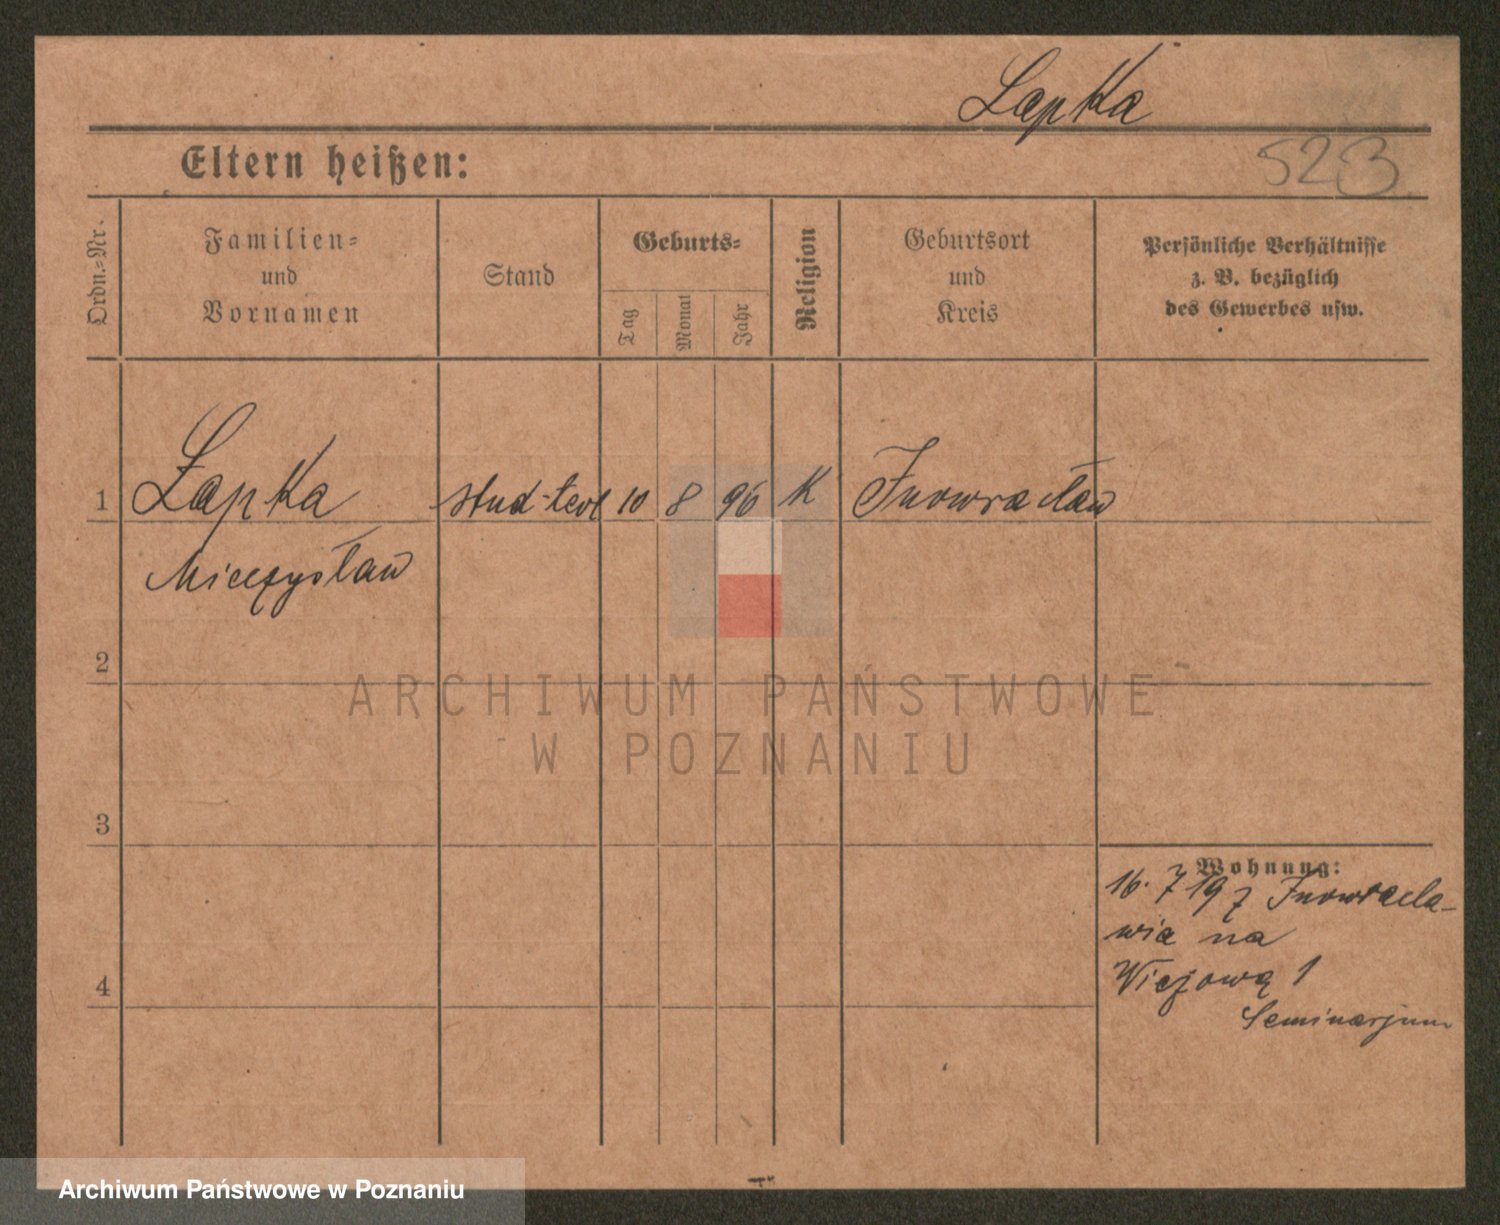 Łapka
523
Eltern heißen:
Ordn.-Nr.
Familien-
und
Vornamen
Stand
Geburts-
Tag
Monat
Jahr
Religion
Geburtsort
und
Kreis
Persönliche Verhältnisse
z. B. bezüglich
des Gewerbes usw.
1 Łapka stud-teol 10 8 96 K Inowracław
Mieczysław
2
ARCHIWUM PAŃSTWOWE
W POZNANIU
3
Wohnung:
16. 7 19 z Inowrocła-
wia na
Wieżową 1
Seminarjum
4
Archiwum Państwowe w Poznaniu